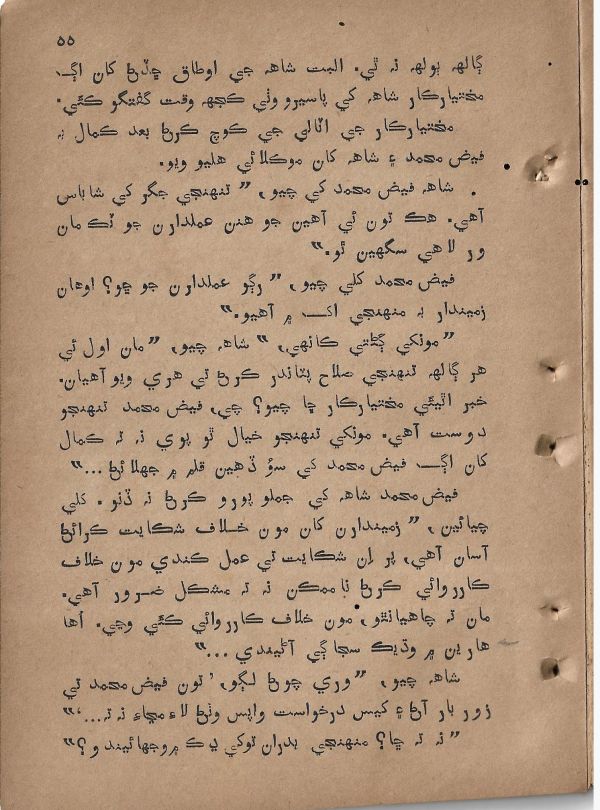 ٥٥
ڳالهه ٻولهه نه ٿي. البت شاهه جي اوطاق ڇڏڻ کان اڳ،
مختيارڪار شاهه کي پاسيرو وٺي ڪجهه وقت گفتگو ڪئي.
مختيارڪار جي اٽالي جي ڪوچ ڪرڻ بعد ڪمال به
فيض محمد ۽ شاهه کان موڪلائي هليو ويو.
شاهه فيض محمد کي چيو، ”تنهنجي جگر کي شاباس
آهي. هڪ تون ئي آهين جو هنن عملدارن جو ٽڪ مان
ور لاهي سگهين ٿو.“
فيض محمد کلي چيو، ”رڳو عملدارن جو ڇو؟ اوهان
زميندار به منهنجي اک ۾ آهيو.“
”مونکي ڳڻتي ڪانهي،“ شاهه چيو، ”مان اول ئي
هر ڳالهه تنهنجي صلاح پٽاندر ڪرڻ تي هري ويو آهيان.
خبر اٿيئي مختيارڪار ڇا چيو؟ چي، فيض محمد تنهنجو
دوست آهي. مونکي تنهنجو خيال ٿو پوي نه ته ڪمال
کان اڳ فيض محمد کي سؤ ڏهين قلم ۾ جهلائڻ...“
فيض محمد شاهه کي جملو پورو ڪرڻ نه ڏنو. کلي
چيائين، ”زميندارن کان مون خلاف شڪايت ڪرائڻ
آسان آهي، پر ان شڪايت تي عمل ڪندي مون خلاف
ڪارروائي ڪرڻ ناممڪن نه ته مشڪل ضرور آهي.
مان ته چاهيانٿو، مون خلاف ڪارروائي ڪئي وڃي. اها
هارين ۾ وڌيڪ سجاڳي آڻيندي ...“
شاهه چيو، ”وري چوڻ لڳو، ’تون فيض محمد تي
زور بار آڻ ۽ ڪيس درخواست واپس وٺڻ لاءِ مڃاءِ نه ته...‘“
”نه ته ڇا؟ منهنجي بدران توکي ڍڪ ۾ وجهائيندو؟“